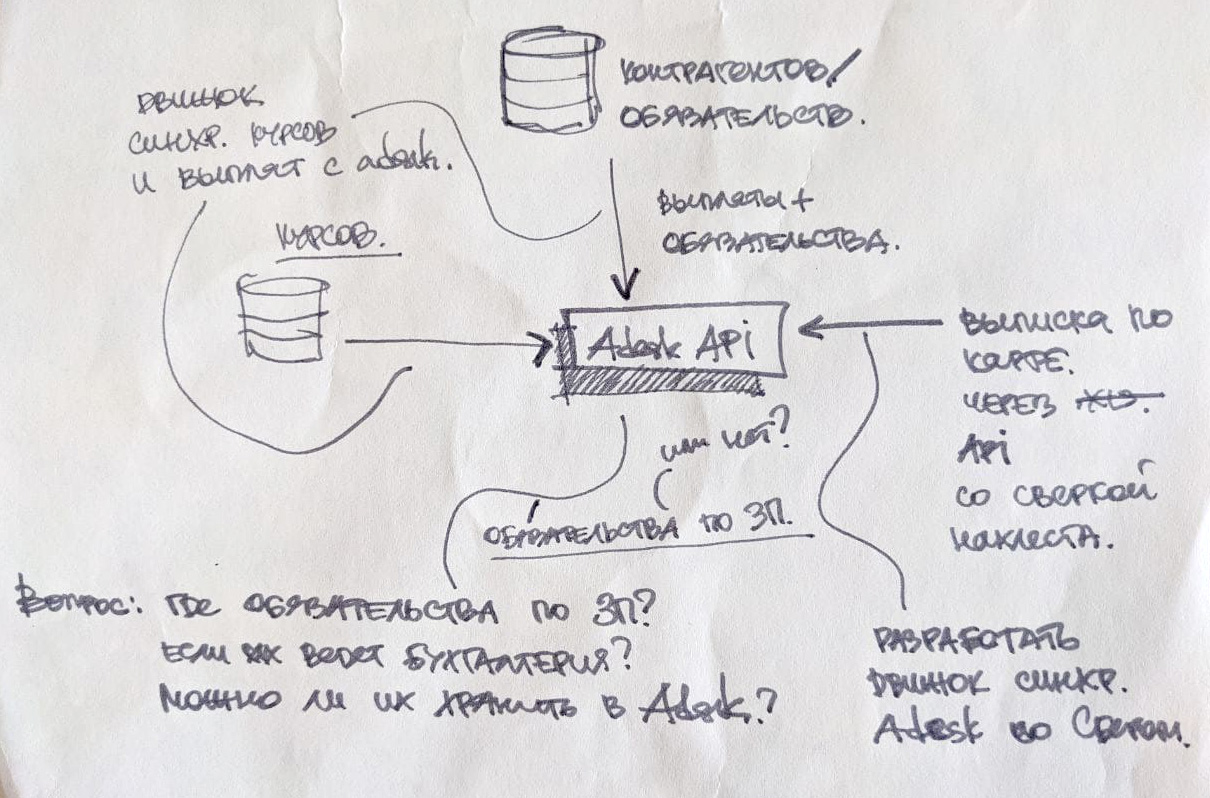 КОНТРАГЕНТОВ/
ОБЯЗАТЕЛЬСТВ.
ДВИЖОК
СИНХР. КУРСОВ
И ВЫПЛАТ С adesk.
ВЫПЛАТЫ +
ОБЯЗАТЕЛЬСТВА.
КУРСОВ.
Adesk APi
ВЫПИСКА ПО
КАРТЕ.
ЧЕРЕЗ
APi
СО СВЕРКОЙ
ИЛИ НЕТ?
ОБЯЗАТЕЛЬСТВА ПО ЗП.
Вопрос: ГДЕ ОБЯЗАТЕЛЬСТВА ПО ЗП?
ЕСЛИ ИХ ВЕДЕТ БУХГАЛТЕРИЯ?
МОЖНО ЛИ ИХ ХРАНИТЬ В Adesk?
РАЗРАБОТАТЬ
ДВИЖОК СИНХР.
Adesk со